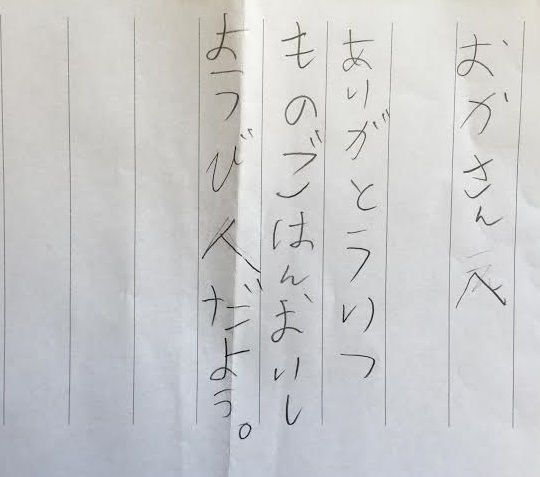 おかさんえ
ありがとういつ
ものごはんおいし
ようび人だよう。